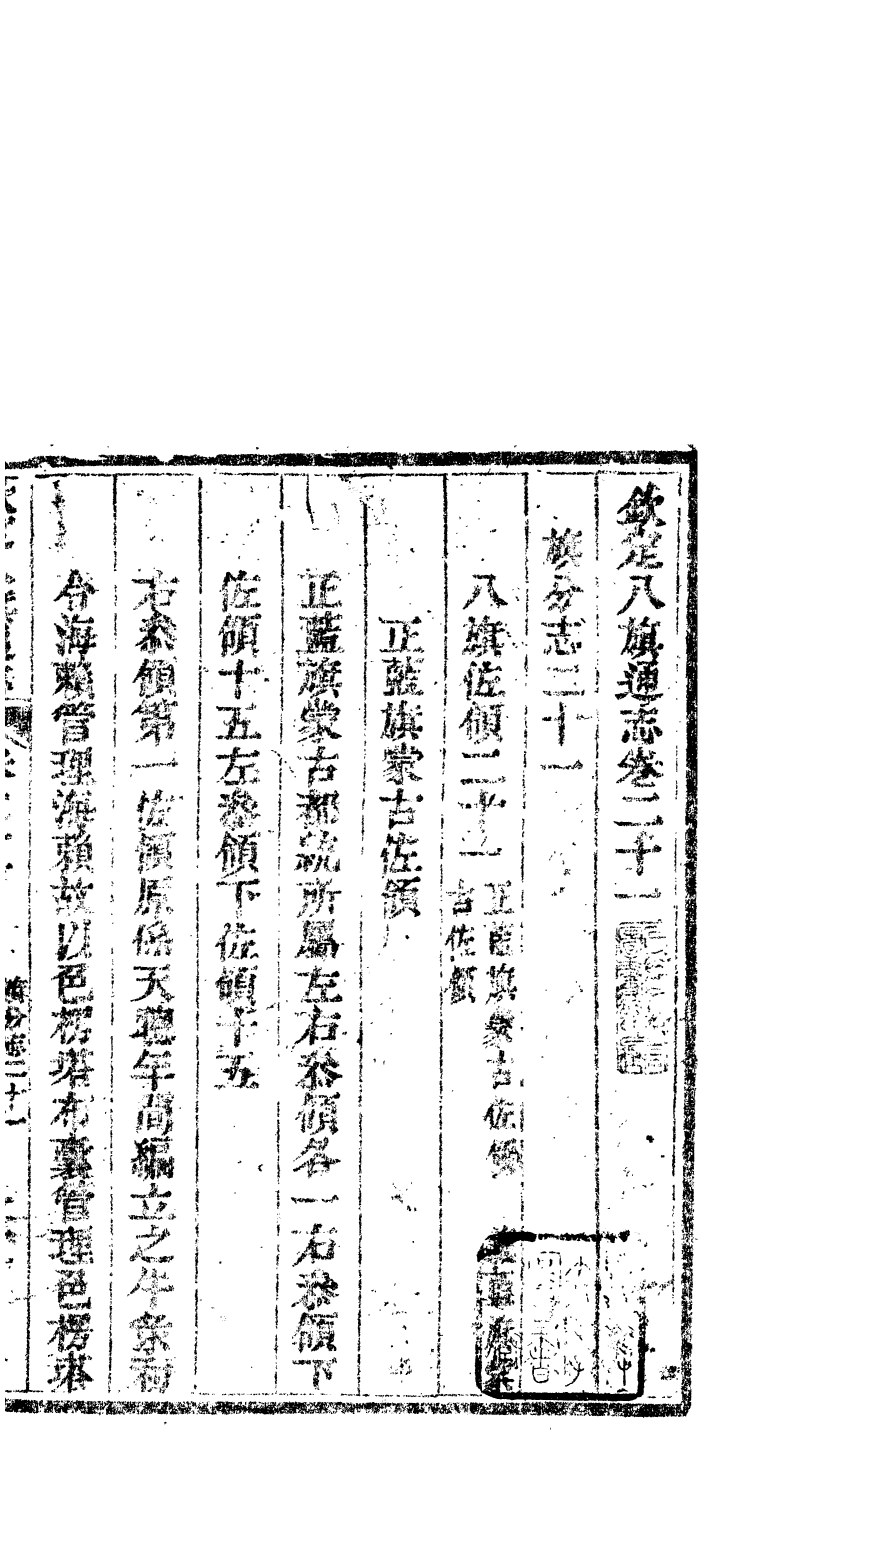 欽定八旗通志卷二十一
旗分志二十一
八旗佐領二十一 正藍旗蒙古佐領 旗蒙
古佐領
正藍旗蒙古佐領
正藍旗蒙古都統所屬左右叅領各一右叅領下
佐領十五左叅領下佐領十五
右叅領第一佐領原係天聰年間編立之牛彔初
令海賴管理海賴故以邑楞塔布囊管理邑楞塔
旗分志二十一